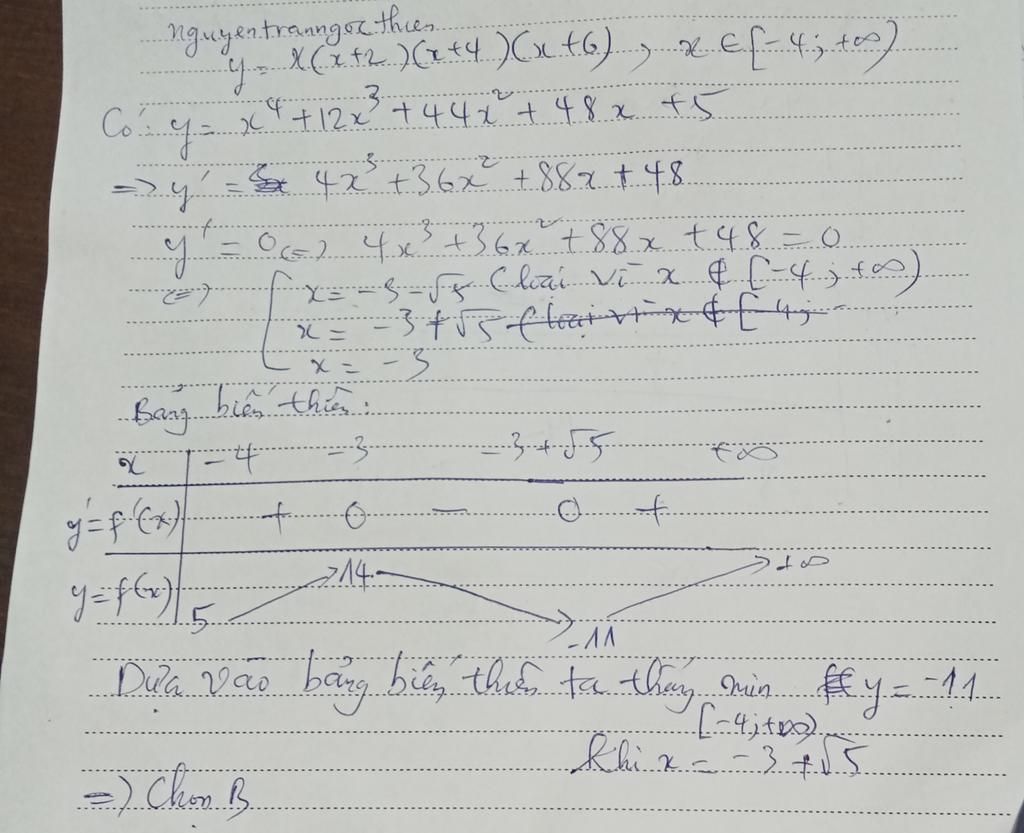 nguyentranngocthien
y = x(x+2)(x+4)(x+6), x ∈ [-4; +∞)
Có: y = x⁴ + 12x³ + 44x² + 48x + 5
=> y' = 4x³ + 36x² + 88x + 48
y' = 0 <=> 4x³ + 36x² + 88x + 48 = 0
<=> x = -3 - √5 (loại vì x ∉ [-4; +∞)
x = -3 + √5 (loại vì x ∉ [-4;
x = -3
Bảng biến thiên:
x -4 -3 -3 + √5 +∞
y' = f'(x) + 0 - 0 +
y = f(x) 5 14 -11 +∞
Dựa vào bảng biến thiên ta thấy min y = -11
[-4; +∞)
Khi x = -3 + √5
=> Chọn B